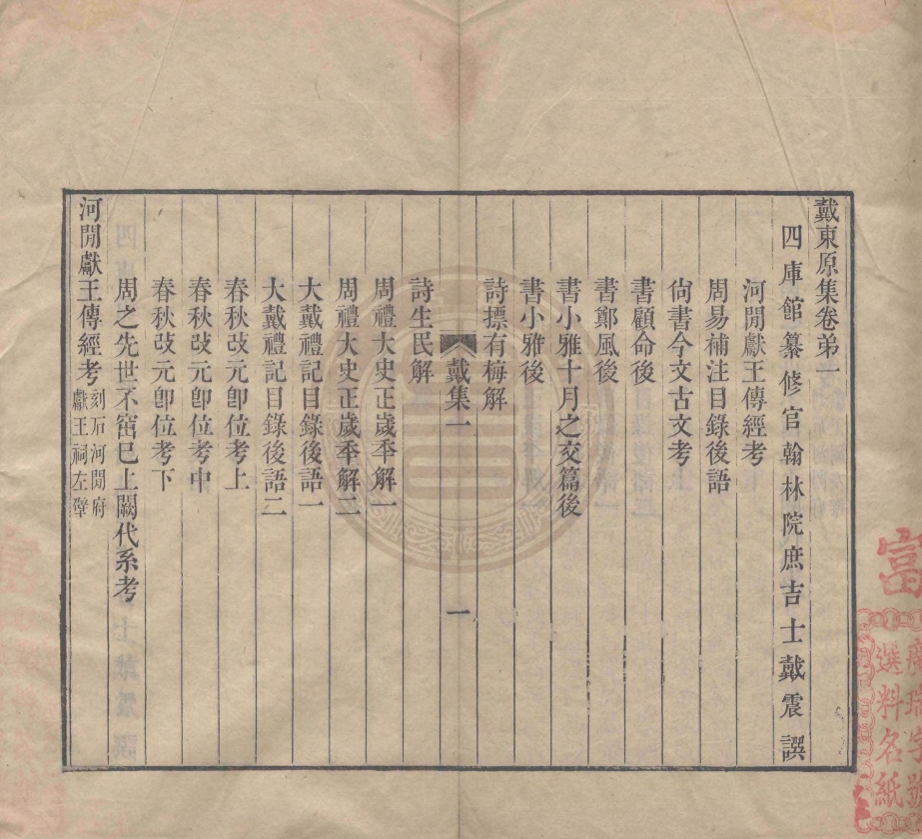 戴東原集卷弟一
四庫館纂修官翰林院庶吉士戴震譔
河閒獻王傳經考
周易補注目錄後語
尙書今文古文考
書顧命後
書鄭風後
書小雅十月之交篇後
書小雅後
詩摽有梅解
戴集一
一
詩生民解
周禮大史正歲秊解一
周禮大史正歲秊解二
大戴禮記目錄後語一
大戴禮記目錄後語二
春秋攷元卽位考上
春秋攷元卽位考中
春秋攷元卽位考下
周之先世不窋巳上闕代系考
河閒獻王傳經考
刻石河閒府
獻王祠左壁
選料名紙